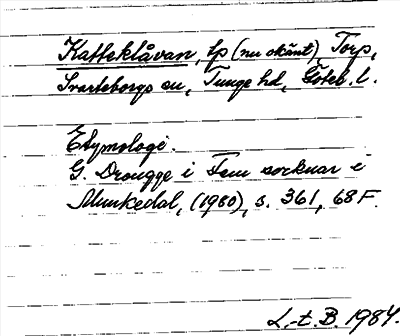 Katteklåvan, tp (nu okänt), Torp,
Svarteborgs sn, Tunge hd, Göteb. l.
Etymologi.
G. Drougge i Fem socknar i
Munkedal, (1980), s. 361, 68 F.
L.-t. B. 1984.